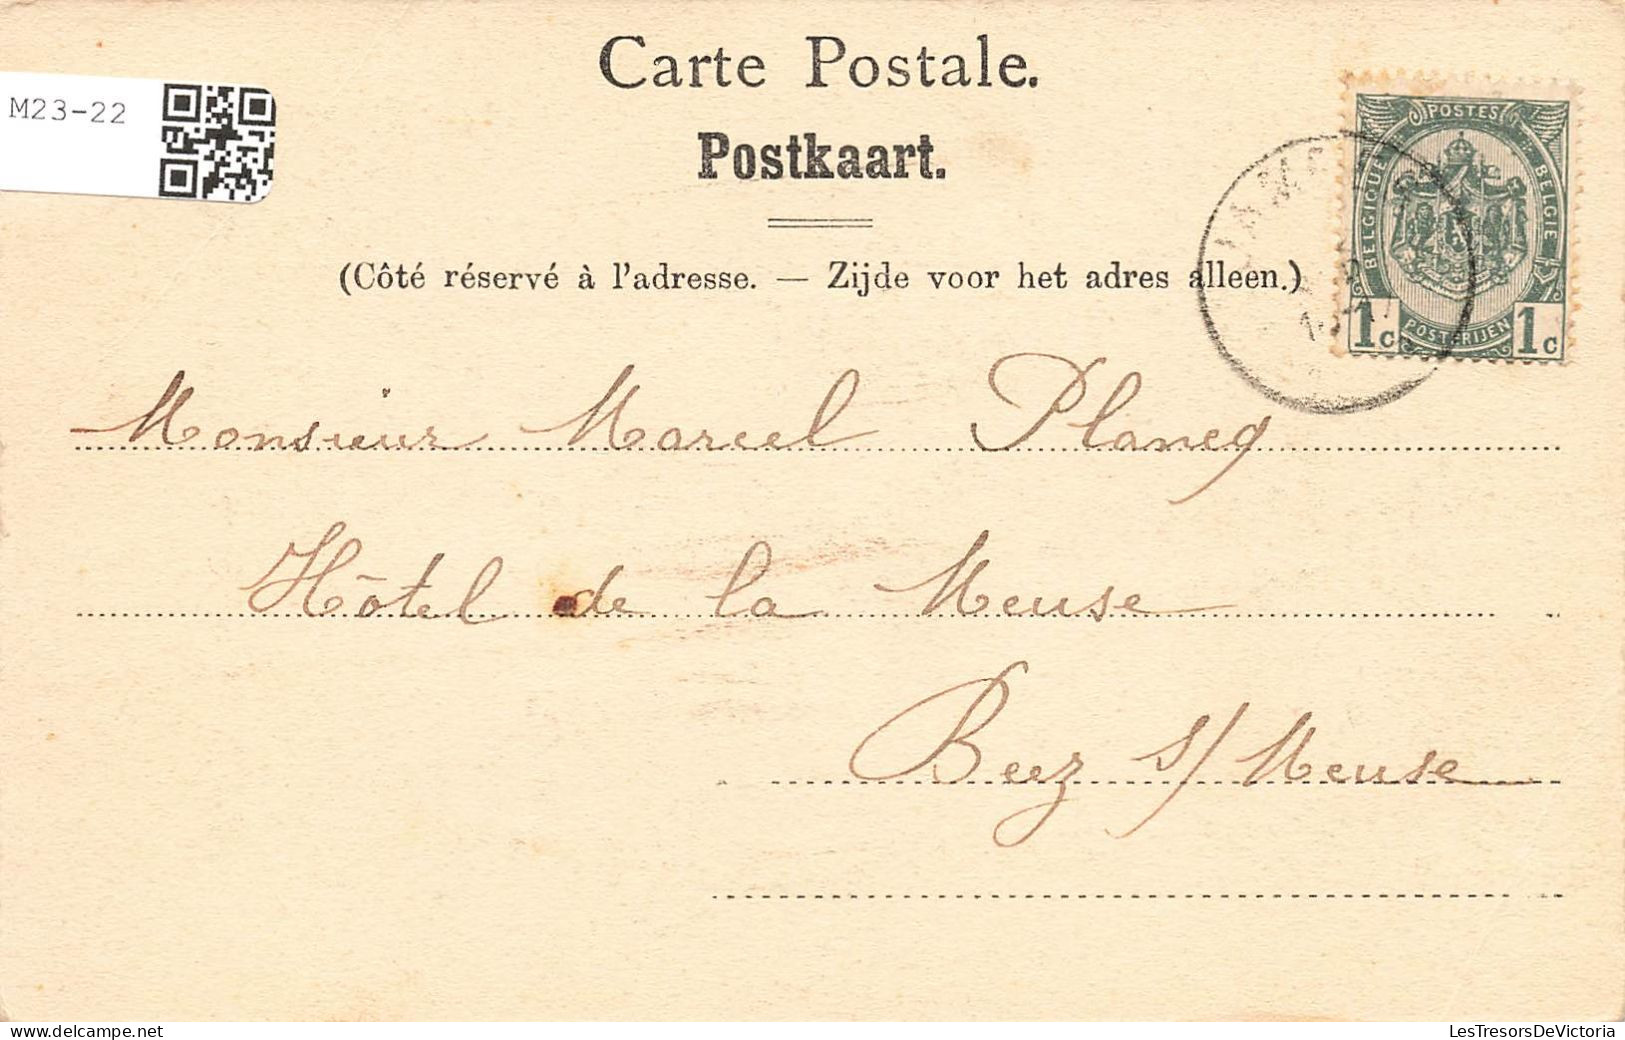 Carte Postale.
M23-22
Postkaart.
(Côté réservé à l'adresse. — Zijde voor het adres alleen.)
POSTES
BELGIQUE
BELGIË
POSTERIJEN
1c 1c
Monsieur Marcel Plancq
Hôtel de la Meuse
Beez s/Meuse
LesTresorsDeVictoria
delcampe.net